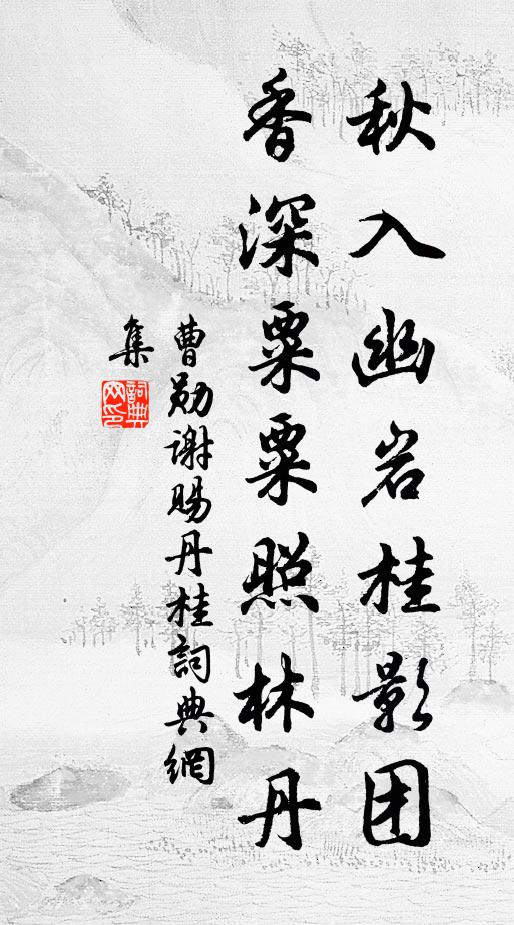 秋入幽岩桂影团
香深粟粟照林丹
曹勋谢赐丹桂詞典網
集
詞典
网印